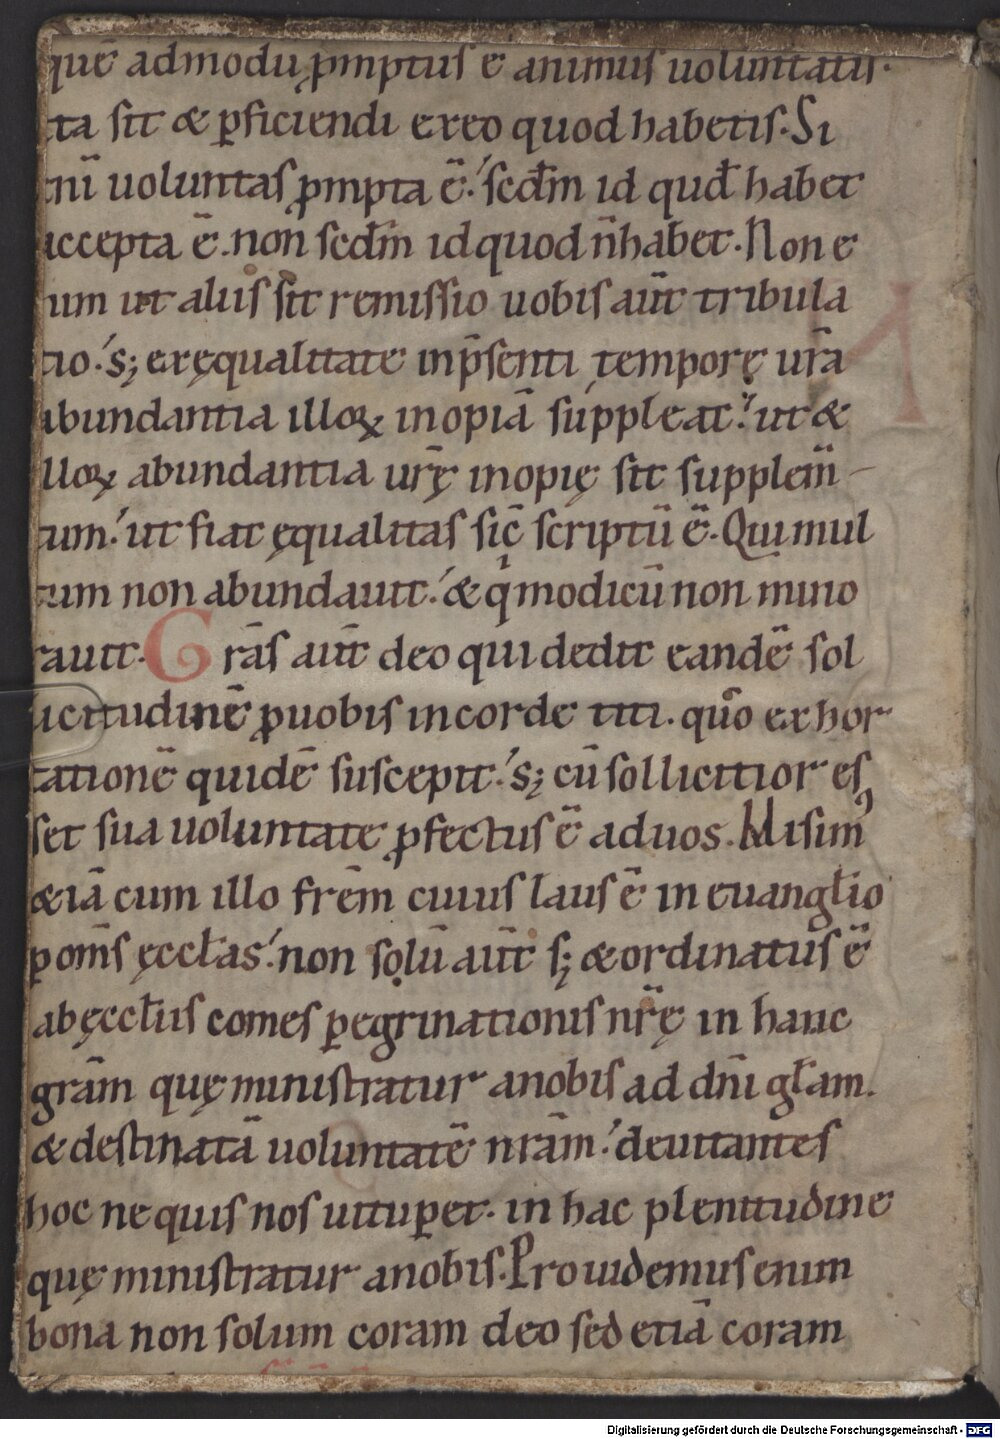 que admodū ꝓmptus ē animus uoluntatis·
ta sit & ꝑficiendi ex eo quod habetis. Si
nī uoluntas ꝓmpta ē. scdm̄ id qud̄ habet
accepta ē. non scdm̄ id quod n̄ habet. Non e
um ut aliis sit remissio uobis aūt tribula
tio. s; ex ęqualitate in p̄senti tempore ur̄a
abundantia illoꝝ inopiā suppleat. ut &
lloꝝ abundantia ur̄ę inopię sit supplem̄
tum. ut fiat ęqualitas sic̄ scriptū ē. Qui mul
tum non abundauit. & q modicū non mino
rauit. Grās aūt deo qui dedit eandē sol
icitudinē ꝓ uobis in corde titi. qūo exhor
tationē quidē suscepit. s; cū sollicitior es
set sua uoluntate ꝓfectus ē ad uos. Misimꝰ
& iā cum illo frēm cuius laus ē in euangl̄io
ꝑ om̄s ęccl̄as. non solū aūt s; & ordinatus ē
ab ęccl̄iis comes ꝑegrinationis nr̄ę in hanc
grām quę ministratur a nobis ad dn̄i gl̄am.
& destinatā uoluntatē nrām. deuitantes
hoc ne quis nos uituꝑet. in hac plenitudine
quę ministratur a nobis. Prouidemus enim
bona non solum coram deo sed etiā coram
Digitalisierung gefördert durch die Deutsche Forschungsgemeinschaft - DFG